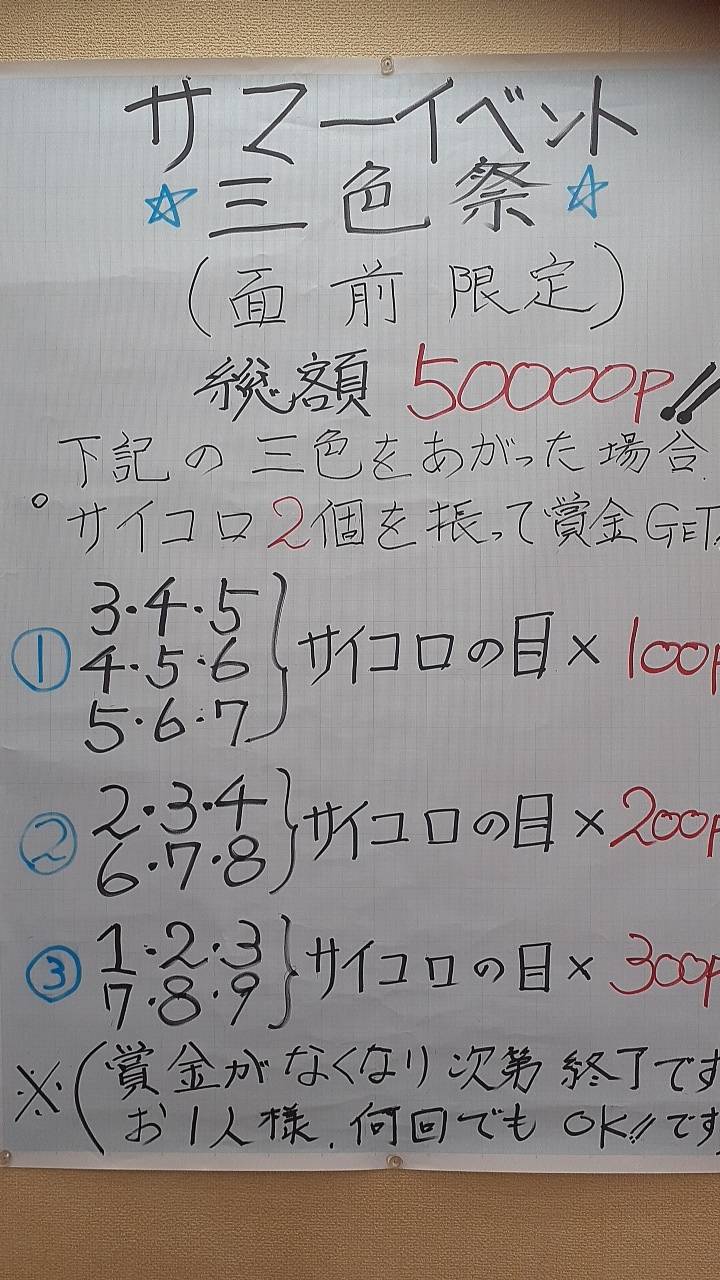 サマーイベント
☆三色祭☆
(面前限定)
総額 50000P!!
下記の三色をあがった場合.
。サイコロ2個を振って賞金GET!
① 3・4・5
4・5・6
5・6・7
} サイコロの目×100P
② 2・3・4
6・7・8
} サイコロの目×200P
③ 1・2・3
7・8・9
} サイコロの目×300P
※(賞金がなくなり次第終了です
お1人様.何回でもOK!!です